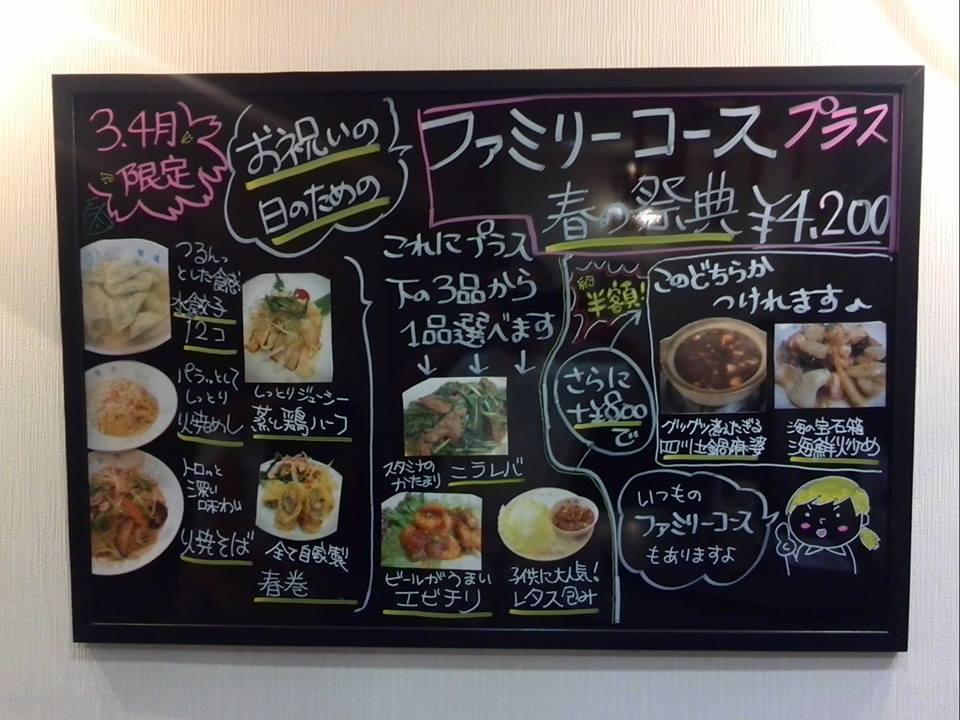 3.4月
限定
お祝いの
日のための
ファミリーコース プラス
春の祭典 ¥4,200
つるんっ
とした食感
水餃子
12コ
パラっとして
しっとり
焼めし
トロッと
深い
味わい
焼そば
しっとりジューシー
蒸し鶏ハーフ
全て自家製
春巻
これにプラス
下の3品から
1品選べます
↓ ↓ ↓
スタミナの
かたまり
ニラレバ
ビールがうまい
エビチリ
子供に大人気!
レタス包み
半額!
さらに
+¥800
で
このどちらか
つけれます♪
グツグツ煮えたぎる
四川土鍋麻婆
海の宝石箱
海鮮炒め
いつもの
ファミリーコース
もありますよ